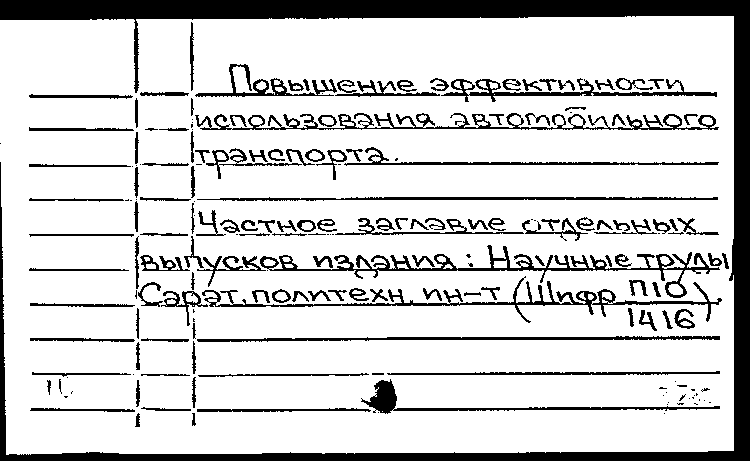 Повышение эффективности
использования автомобильного
транспорта.
Частное заглавие отдельных
выпусков издания: Научные труды
Сарат. политехн. ин-т (Шифр П10/1416).